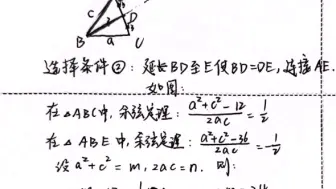 C
D
B a C
选择条件②：延长BD至E使BD=DE，连接AE.
如图：
在△ABC中，余弦定理：(a²+c²-12)/(2ac) = 1/2
在△ABE中，余弦定理：(a²+c²-36)/(2ac) = -1/2
设a²+c²=m, 2ac=n. 则：